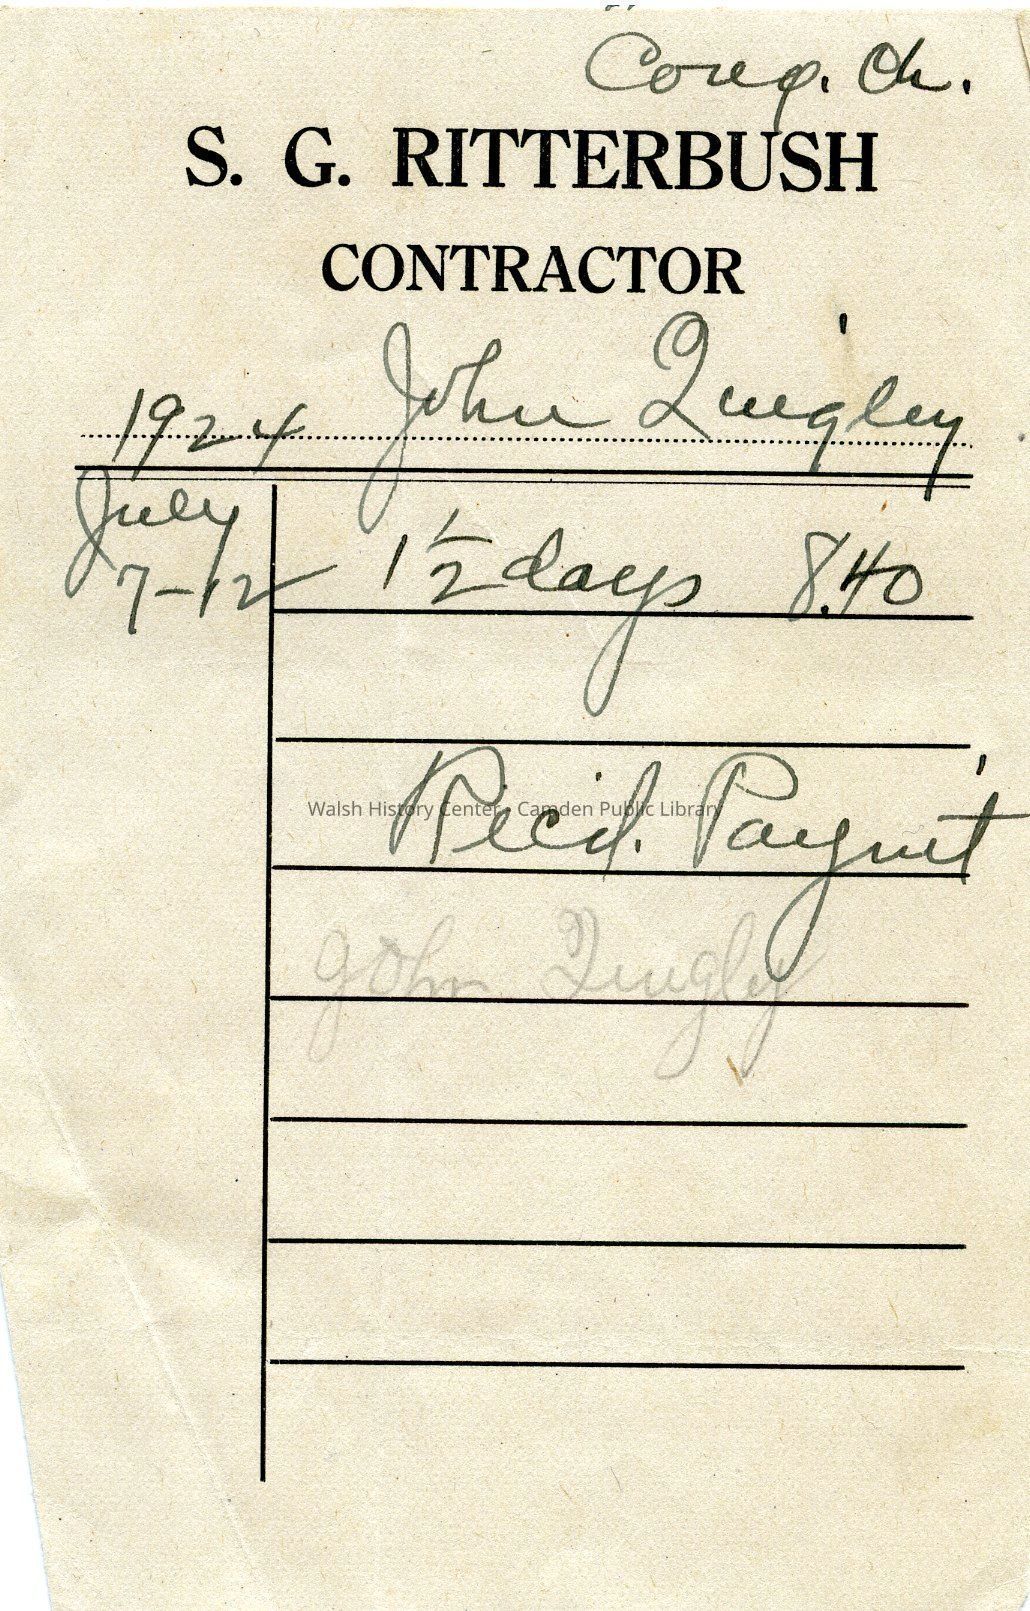 Cong. Ch.
S. G. RITTERBUSH
CONTRACTOR
1924 John Quigley
July
7-12 1 1/2 days 8.40
Walsh History Center - Camden Public Library
Rec'd. Paym't
John Quigly